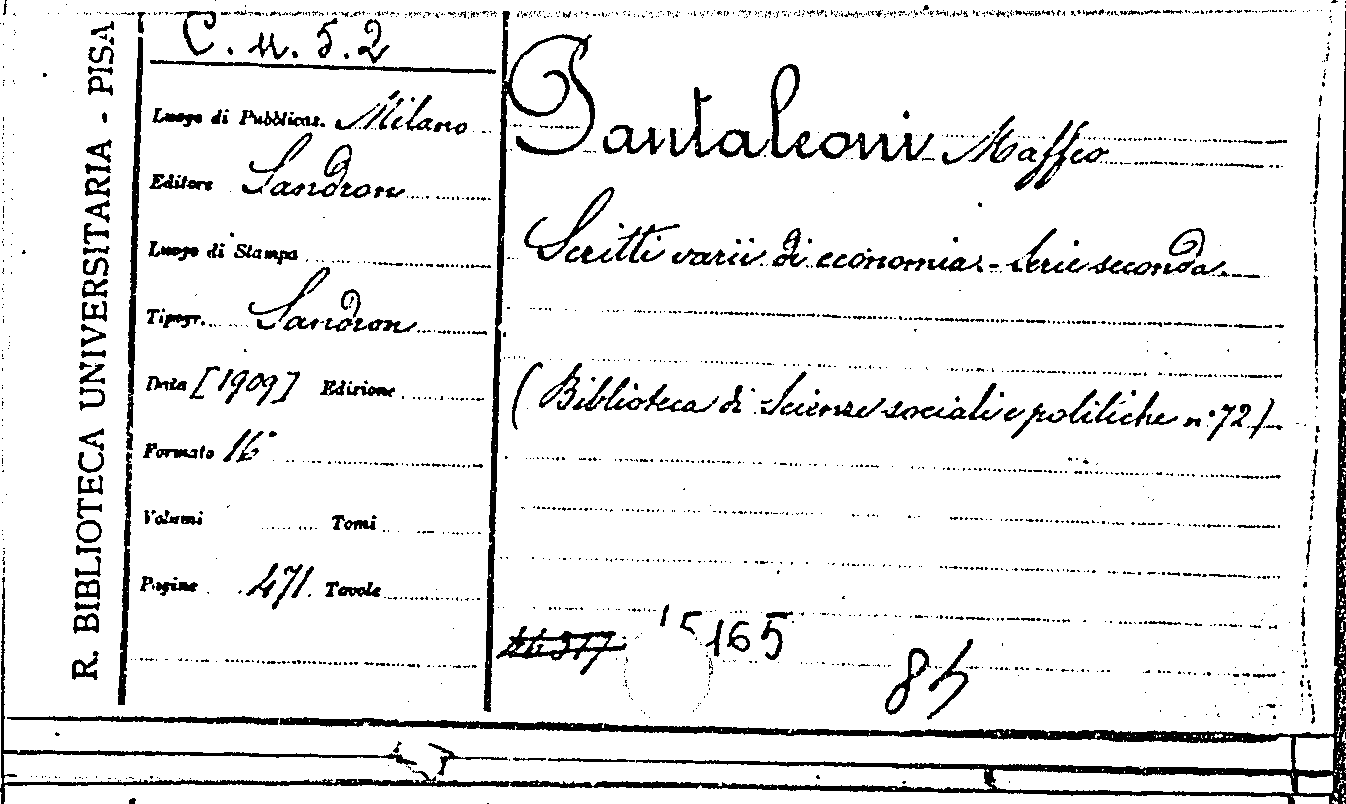 R. BIBLIOTECA UNIVERSITARIA - PISA
C. n. 5. 2
Luogo di Pubblicaz. Milano
Editore Sandron
Luogo di Stampa
Tipogr. Sandron
Data [1909] Edizione
Formato 16°
Volumi Tomi
Pagine 471. Tavole
Pantaleoni Maffeo
Scritti varii di economia. - Serie seconda.
(Biblioteca di Scienze sociali e politiche n.° 72).
165